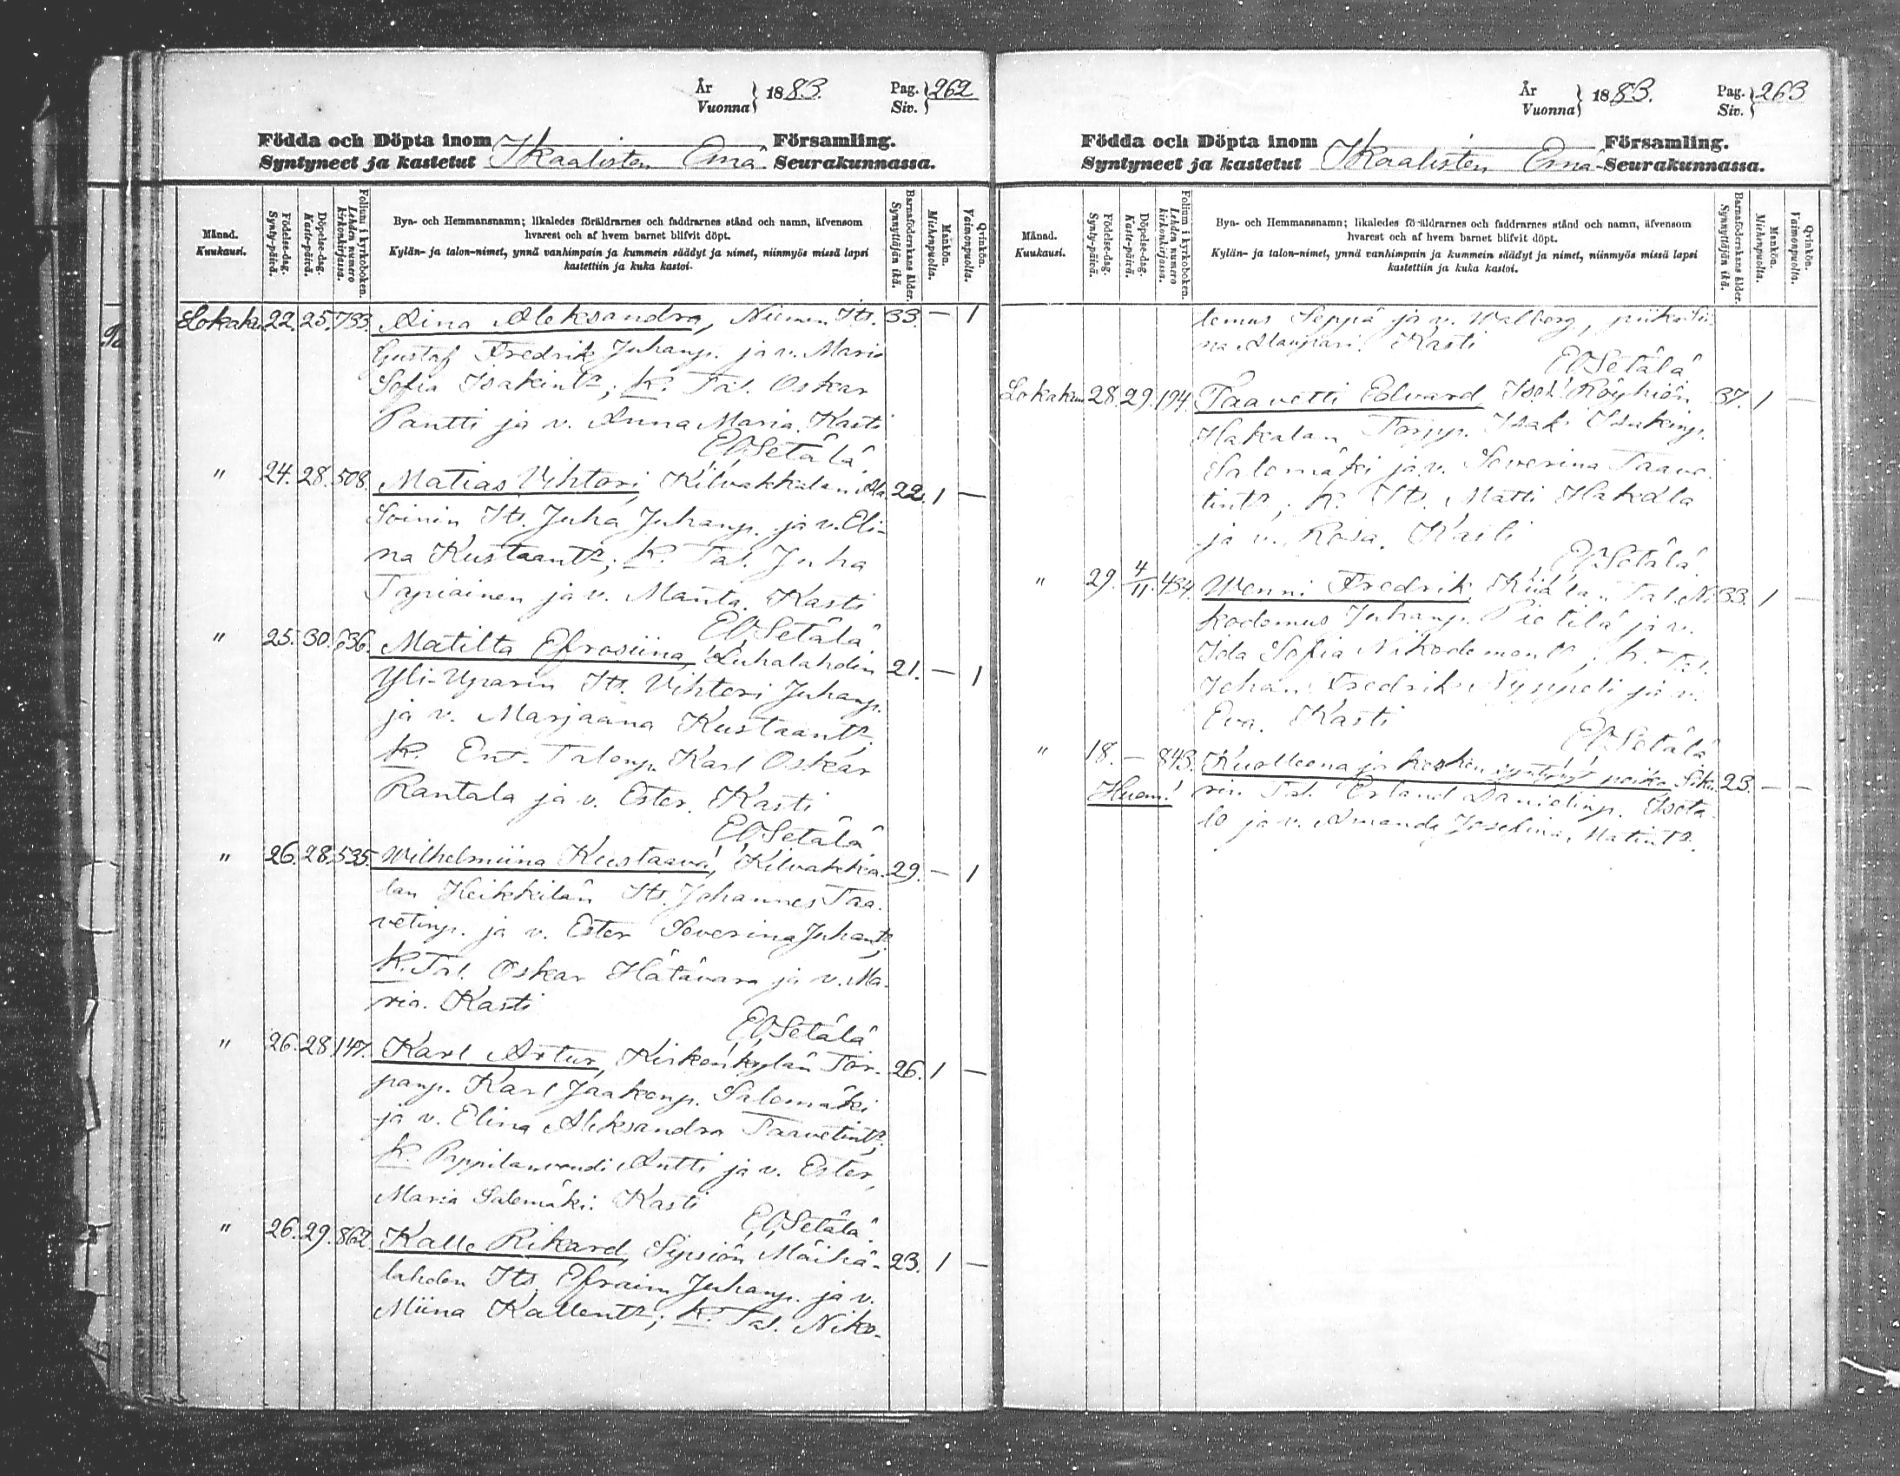 År
Vuonna } 1883.
Pag.
Siv. } 262
Födda och Döpta inom Församling.
Syntyneet ja kastetut Ikaalisten Emä Seurakunnassa.
Månad.
Kuukausi.
Födelse-dag.
Synty-päivä.
Döpelse-dag.
Kaste-päivä.
Folium i kyrkoboken.
Lehden numero kirkonkirjassa.
Bya- och Hemmansnamn; likaledes föräldrarnes och faddrarnes stånd och namn, äfvensom
hvarest och af hvem barnet blifvit döpt.
Kylän- ja talon-nimet, ynnä vanhimpain ja kummein säädyt ja nimet, niinmyös missä lapsi
kastettiin ja kuka kastoi.
Barnaföderskans ålder.
Synnyttäjän ikä.
Mankön.
Miehenpuolta.
Qvinkön.
Vaimonpuolta.
Lokaku 22. 25. 733. Aina Aleksandra, Niemen Its. 33. — 1
Gustaf Fredrik Juhanp. ja v. Maria
Sofia Isakint.; k. Tal. Oskar
Pantti ja v. Anna Maria. Kasti
EOSetälä.
" 24. 28. 508. Matias Vihtori, Kilvakkalan Ala 22. 1 —
Soinin Its. Juha Juhanp. ja v. Eli-
na Kustaant.; k. Tal. Juha
Tapiainen ja v. Manta. Kasti
EOSetälä.
" 25. 30. 636. Matilta Efrosiina, Luhalahden 21. — 1
Yli-Uparin Its. Vihtori Juhanp.
ja v. Marjaana Kustaant.
k. Ent. Talonp. Karl Oskar
Rantala ja v. Ester. Kasti
EOSetälä
" 26. 28. 535. Wilhelmiina Kustaava, Kilvakka- 29. — 1
lan Heikkilän Its. Johannes Taa-
vetinp. ja v. Ester Severina Juhant.
k. Tal. Oskar Hätävara ja v. Ma-
ria. Kasti
EOSetälä
" 26. 28. 147. Karl Artur, Kirkonkylän Tor- 26. 1 —
panp. Karl Jaakonp. Salomäki
ja v. Elina Aleksandra Taavetint.;
k. Pappilanvouti Antti ja v. Ester,
Maria Salomäki. Kasti
EOSetälä.
" 26. 29. 862. Kalle Rikard, Sipsiön Mäihä- 23. 1 —
lahden Its. Efraim Juhanp. ja v.
Miina Kallent.; k. Tal. Niko-
År
Vuonna } 1883.
Pag.
Siv. } 263
Födda och Döpta inom Församling.
Syntyneet ja kastetut Ikaalisten Emä Seurakunnassa.
Månad.
Kuukausi.
Födelse-dag.
Synty-päivä.
Döpelse-dag.
Kaste-päivä.
Folium i kyrkoboken.
Lehden numero kirkonkirjassa.
Bya- och Hemmansnamn; likaledes föräldrarnes och faddrarnes stånd och namn, äfvensom
hvarest och af hvem barnet blifvit döpt.
Kylän- ja talon-nimet, ynnä vanhimpain ja kummein säädyt ja nimet, niinmyös missä lapsi
kastettiin ja kuka kastoi.
Barnaföderskans ålder.
Synnyttäjän ikä.
Mankön.
Miehenpuolta.
Qvinkön.
Vaimonpuolta.
demus Seppä ja v. Walborg, piika
Kasti
EOSetälä
Lokakuu 28. 29. 194. Taavetti Edvard, Röyhiön 37. 1 —
Hakalan Torpp. Isak Isakinp.
Salomäki ja v. Severina Taave-
tint.; k. Its. Matti Hakala
ja v. Rosa. Kasti
EOSetälä.
" 29. 4/11. 434. Wenni Fredrik, Kiialan Tal. Ni- 33. 1 —
kodemus Juhanp. Pietilä ja v.
Ida Sofia Nikodemunt.; k. Tal.
Johan Fredrik Nyppeli ja v.
Eva. Kasti
EOSetälä
" 18. — 843. Kuolleena ja kesken syntynyt poika, Siku- 23. — —
Huom! rin Tal. Erland Danielinp. Isota-
lo ja v. Amanda Josefina Matint.